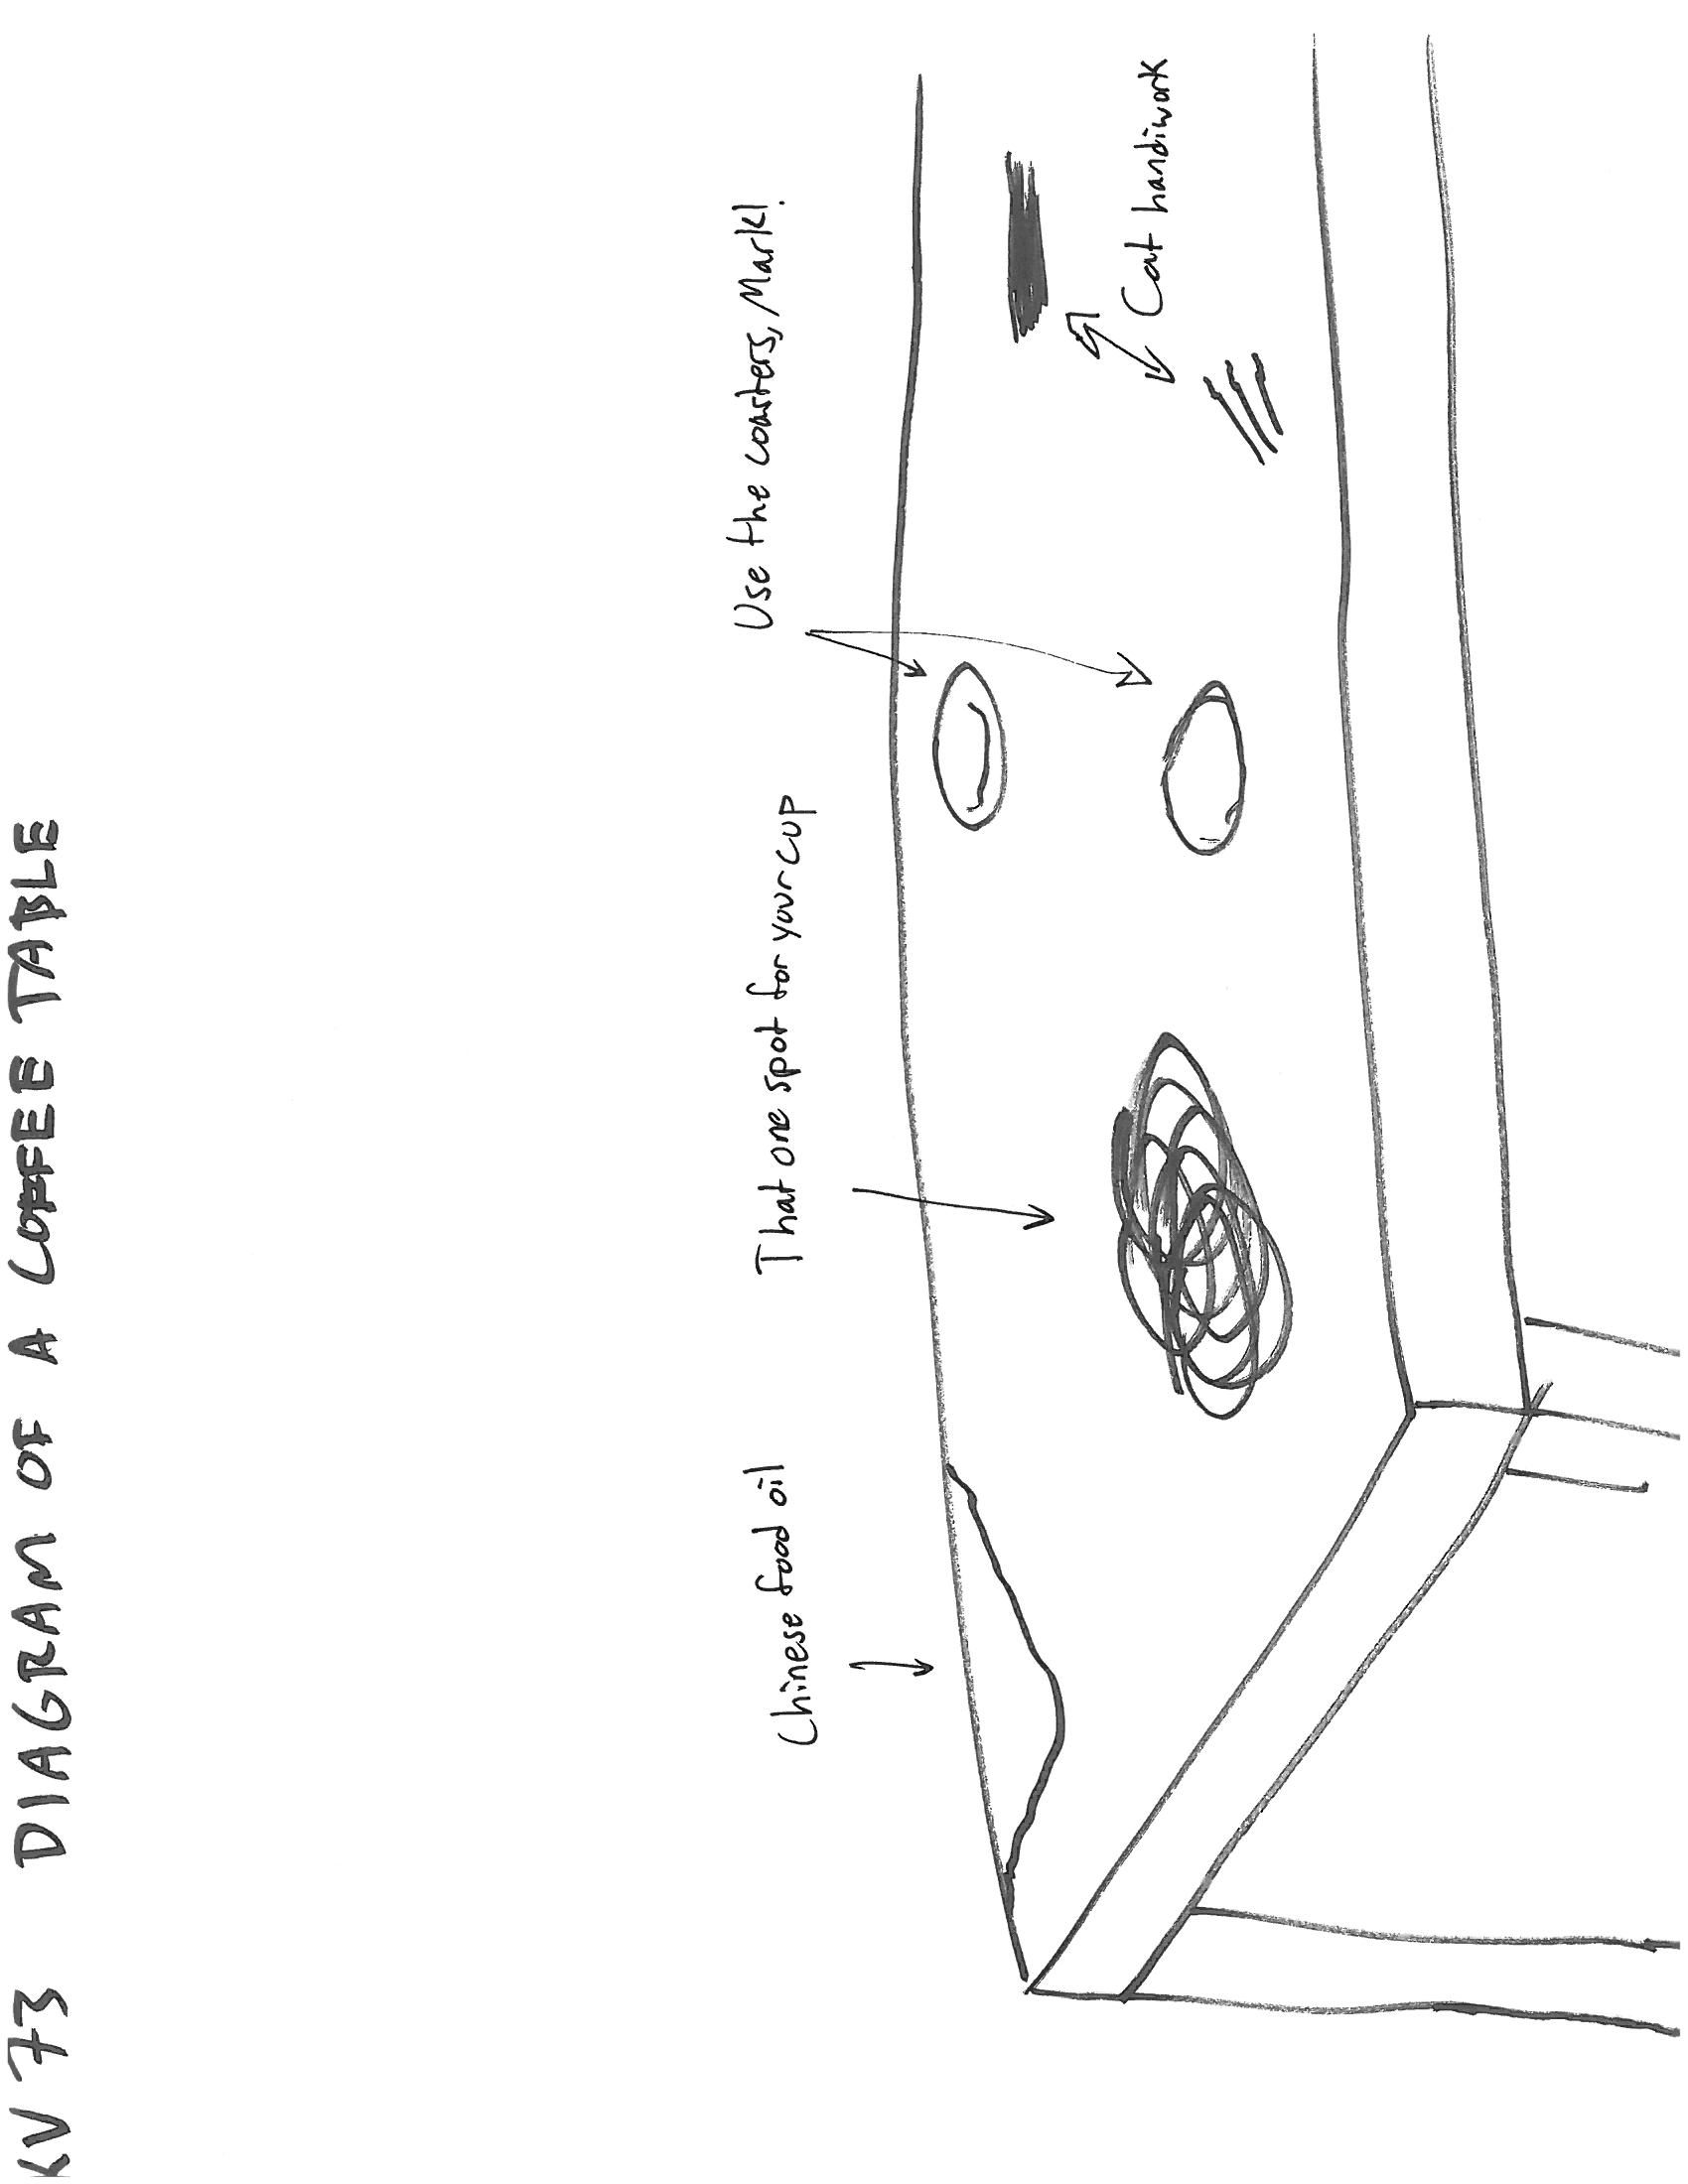 KV 73 DIAGRAM OF A COFFEE TABLE
Chinese food oil
That one spot for your cup
Use the coasters, Mark!
Cat handiwork